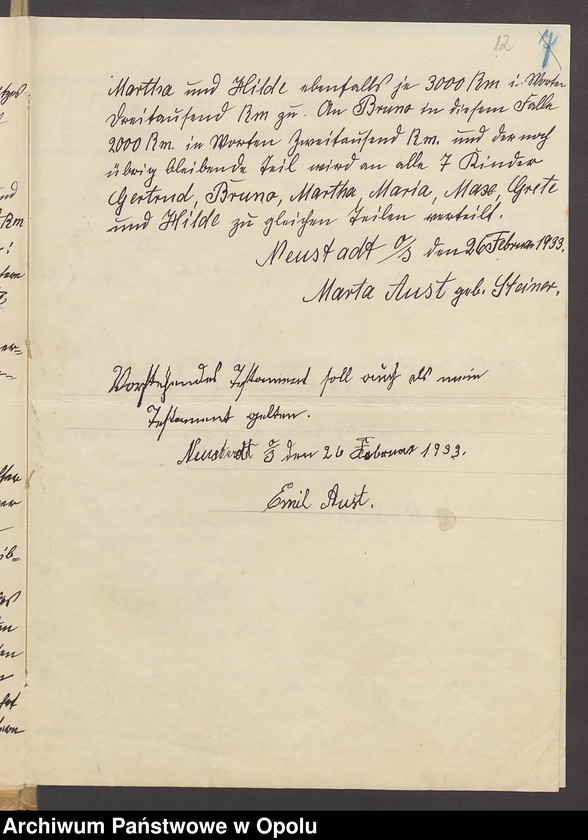 12 7
Martha und Hilde ebenfalls je 3000 Rm i. Worten
Dreitausend Rm zu. An Bruno in diesem Falle
2000 Rm in Worten Zweitausend Rm. und der noch
übrig bleibende Teil wird an alle 7 Kinder
Gertrud, Bruno, Martha, Maria, Max, Grete
und Hilde zu gleichen Teilen verteilt.
Neustadt O/S den 26 Februar 1933.
Marta Aust geb. Steiner.
Vorstehendes Testament soll auch als mein
Testament gelten.
Neustadt O/S den 26 Februar 1933.
Emil Aust.
Archiwum Państwowe w Opolu